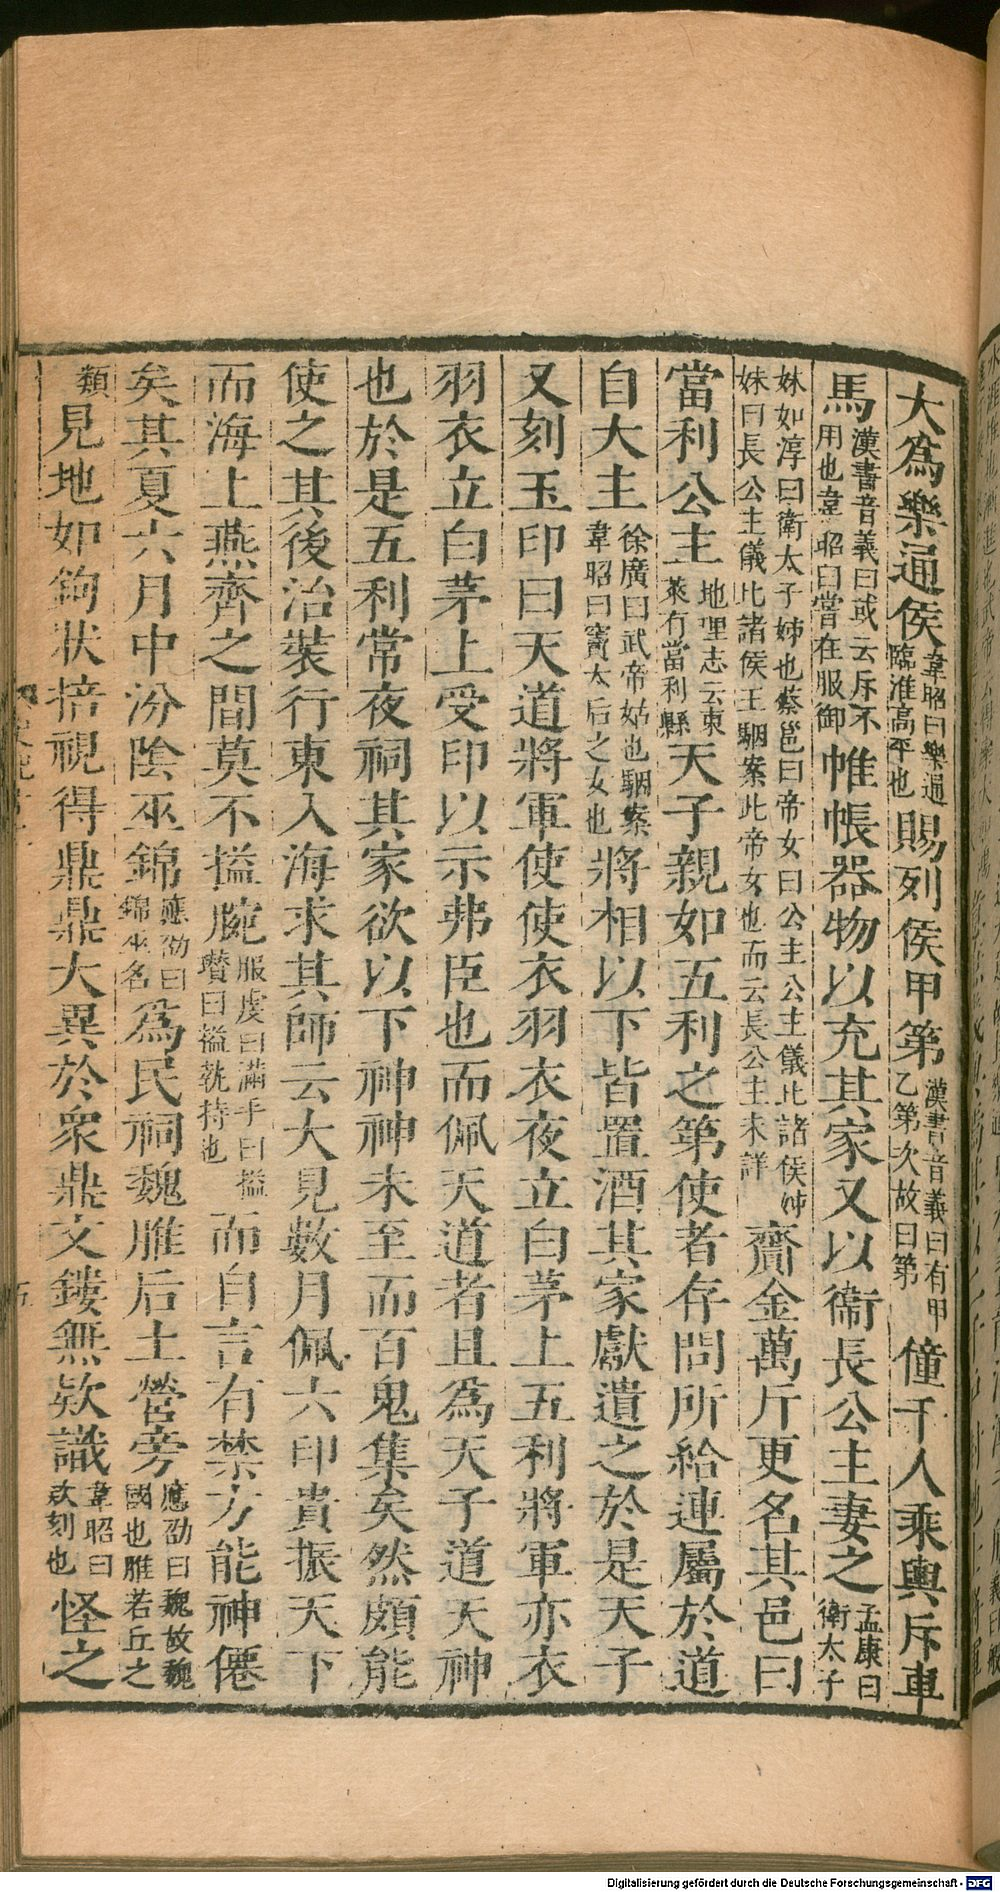 大爲樂通侯韋昭曰樂通臨淮高平也賜列侯甲第漢書音義曰有甲乙第次故曰第僮千人乘輿斥車
馬漢書音義曰或云斥不用也韋昭曰嘗在服御帷帳器物以充其家又以衞長公主妻之孟康曰衛太子
妹如淳曰衛太子姊也蔡邕曰帝女曰公主公主儀比諸侯姊妹曰長公主儀比諸侯王駰案此帝女也而云長公主未詳齎金萬斤更名其邑曰
當利公主地理志云東萊有當利縣天子親如五利之第使者存問所給連屬於道
自大主徐廣曰武帝姑也駰案韋昭曰竇太后之女也將相以下皆置酒其家獻遺之於是天子
又刻玉印曰天道將軍使使衣羽衣夜立白茅上五利將軍亦衣
羽衣立白茅上受印以示弗臣也而佩天道者且爲天子道天神
也於是五利常夜祠其家欲以下神神未至而百鬼集矣然頗能
使之其後治裝行東入海求其師云大見數月佩六印貴振天下
而海上燕齊之間莫不搤腕服虔曰滿手曰搤瓚曰搤執持也而自言有禁方能神僊
矣其夏六月中汾陰巫錦應劭曰錦巫名爲民祠魏脽后土營旁應劭曰魏故魏國也脽若丘之
類見地如鉤狀掊視得鼎鼎大異於衆鼎文鏤無欵識韋昭曰欵刻也怪之
Digitalisierung gefördert durch die Deutsche Forschungsgemeinschaft - DFG